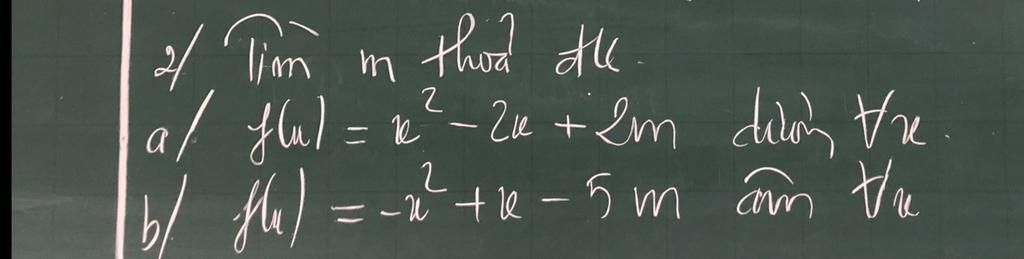 2/ Tìm m thoả đk.
a/ f(x) = x² - 2x + 2m dương ∀x.
b/ f(x) = -x² + x - 5m âm ∀x